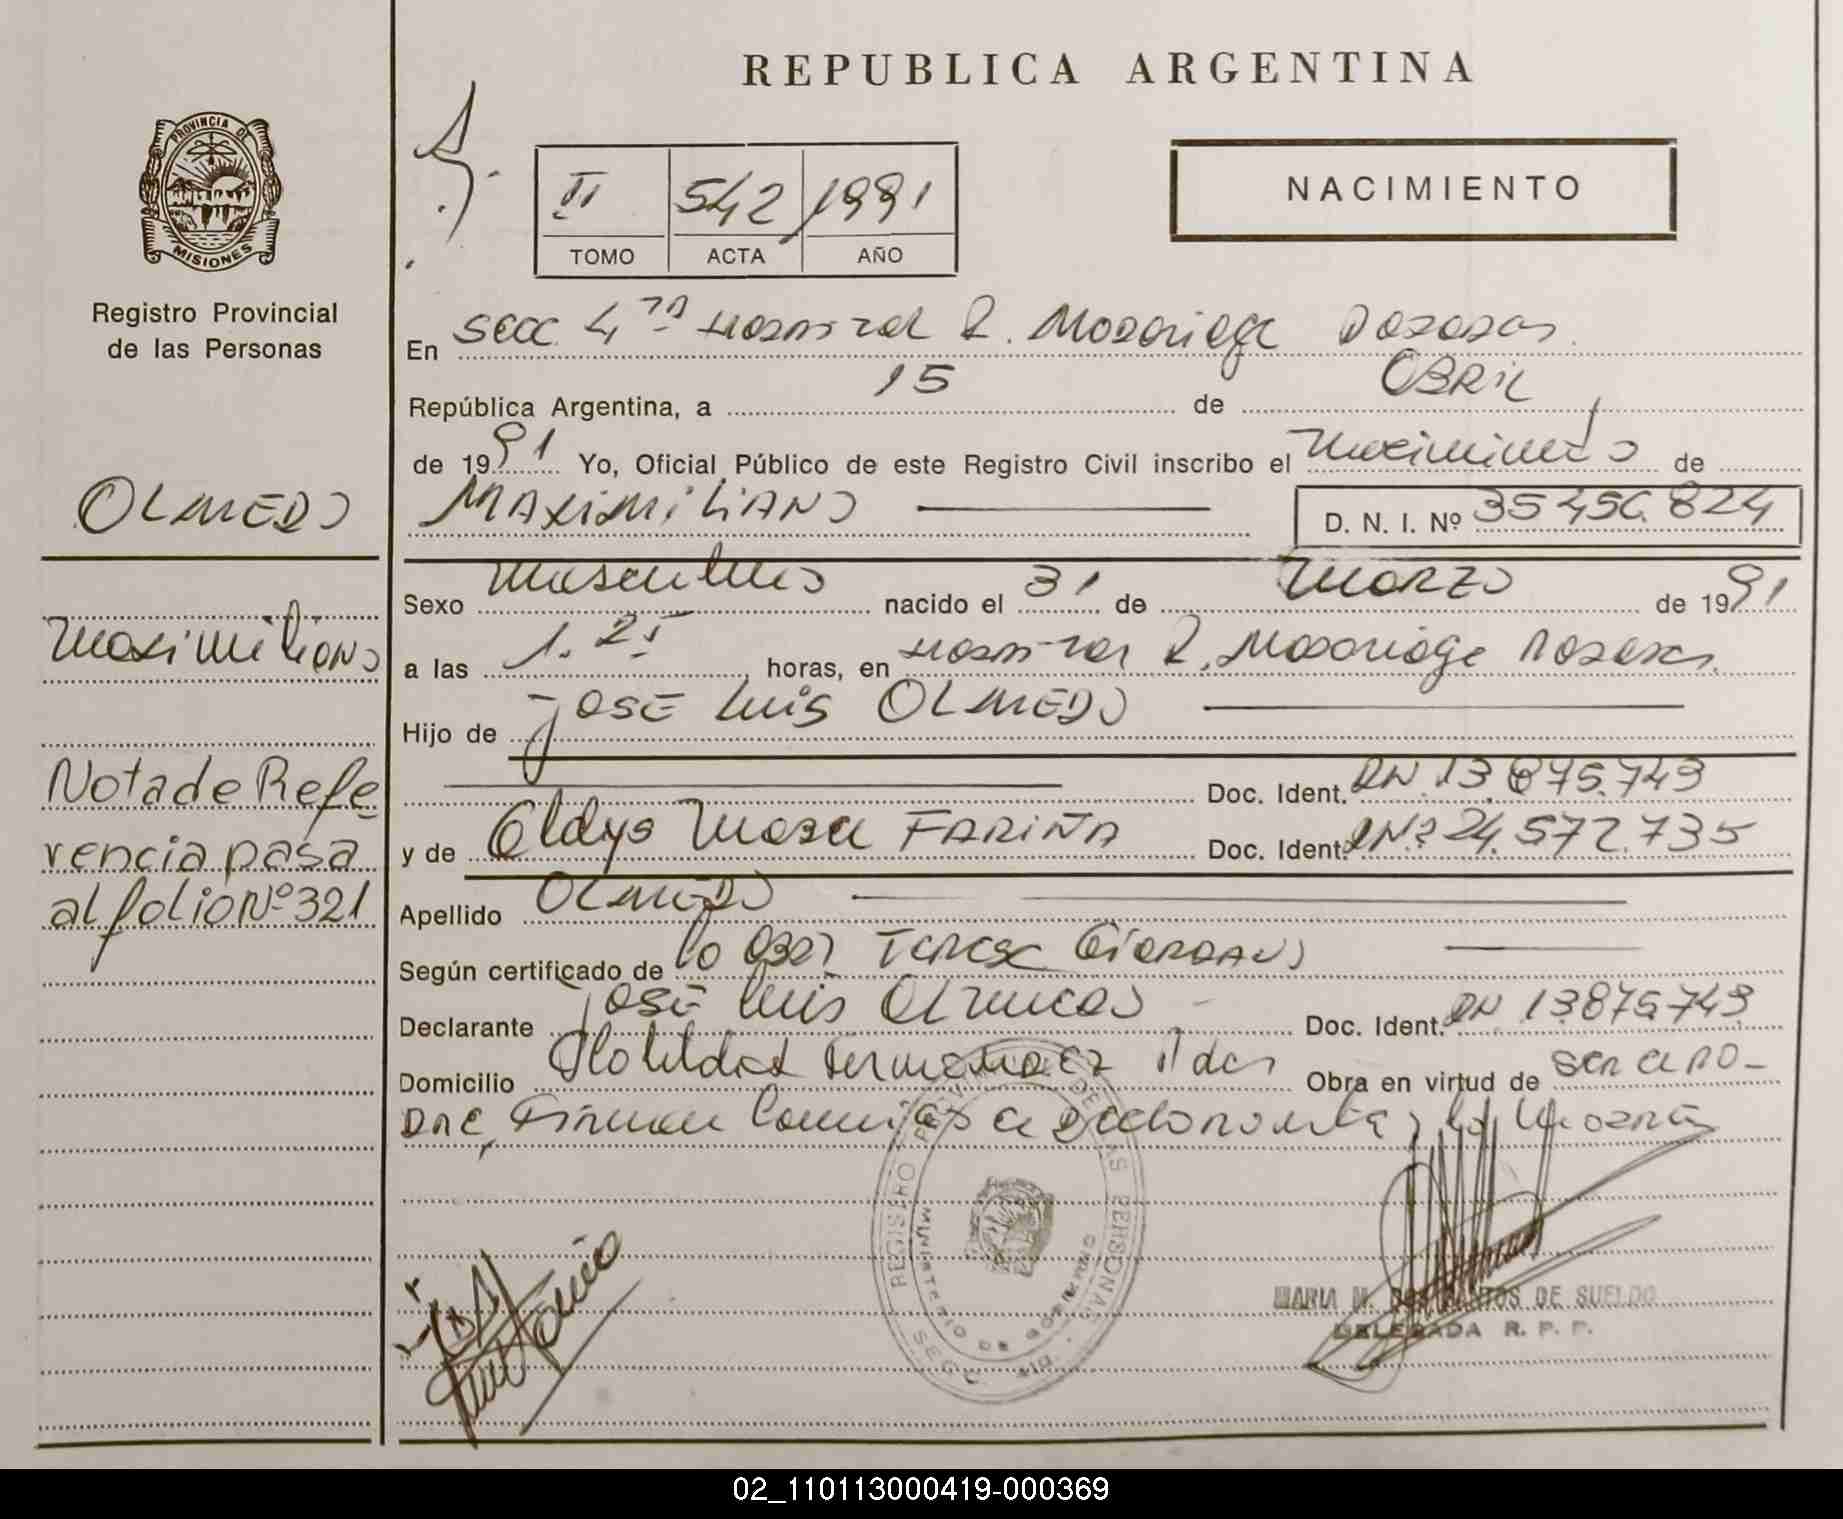 REPUBLICA ARGENTINA
PROVINCIA DE
MISIONES
Registro Provincial
de las Personas
II 542 1991
TOMO ACTA AÑO
NACIMIENTO
En Secc 4ta Hospital R. Madariaga Posadas
República Argentina, a 15 de Abril
de 1991 Yo, Oficial Público de este Registro Civil inscribo el Nacimiento de
MAXIMILIANO
D. N. I. Nº 35.456.824
OLMEDO
Maximiliano
Nota de Refe
rencia pasa
al folio Nº 321
Sexo Masculino nacido el 31 de Marzo de 1991
a las 1.25 horas, en Hospital R. Madariaga Posadas
Hijo de José Luis OLMEDO
Doc. Ident. DN 13.875.743
y de Gladys FARIÑA Doc. Ident. DNº 24.572.735
Apellido OLMEDO
Según certificado de la Obst Teresa Giordano
Declarante José Luis Olmedo Doc. Ident. DN 13.875.743
Domicilio Obra en virtud de ser el pa-
dre, Firman la Madre
REGISTRO PROVINCIAL DE LAS PERSONAS
MINISTERIO DE GOBIERNO
MARIA M. DOS SANTOS DE SUELDO
DELEGADA R. P. P.
02_110113000419-000369